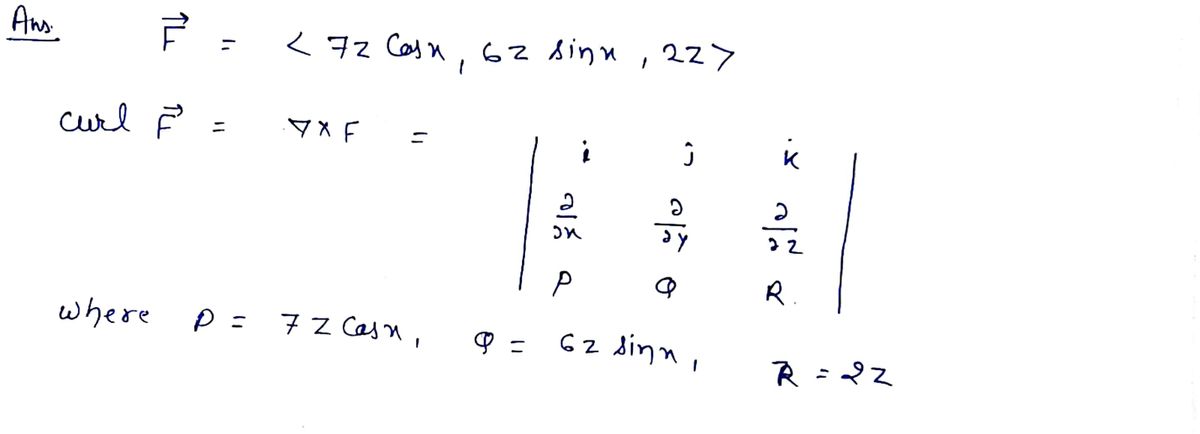 Ans. F⃗ = < 7z Cosx, 6z sinx, 2z>
curl F⃗ = ∇×F = | i j k
∂/∂x ∂/∂y ∂/∂z
P Q R. |
where P = 7z Cosx, Q = 6z sinx, R = 2z